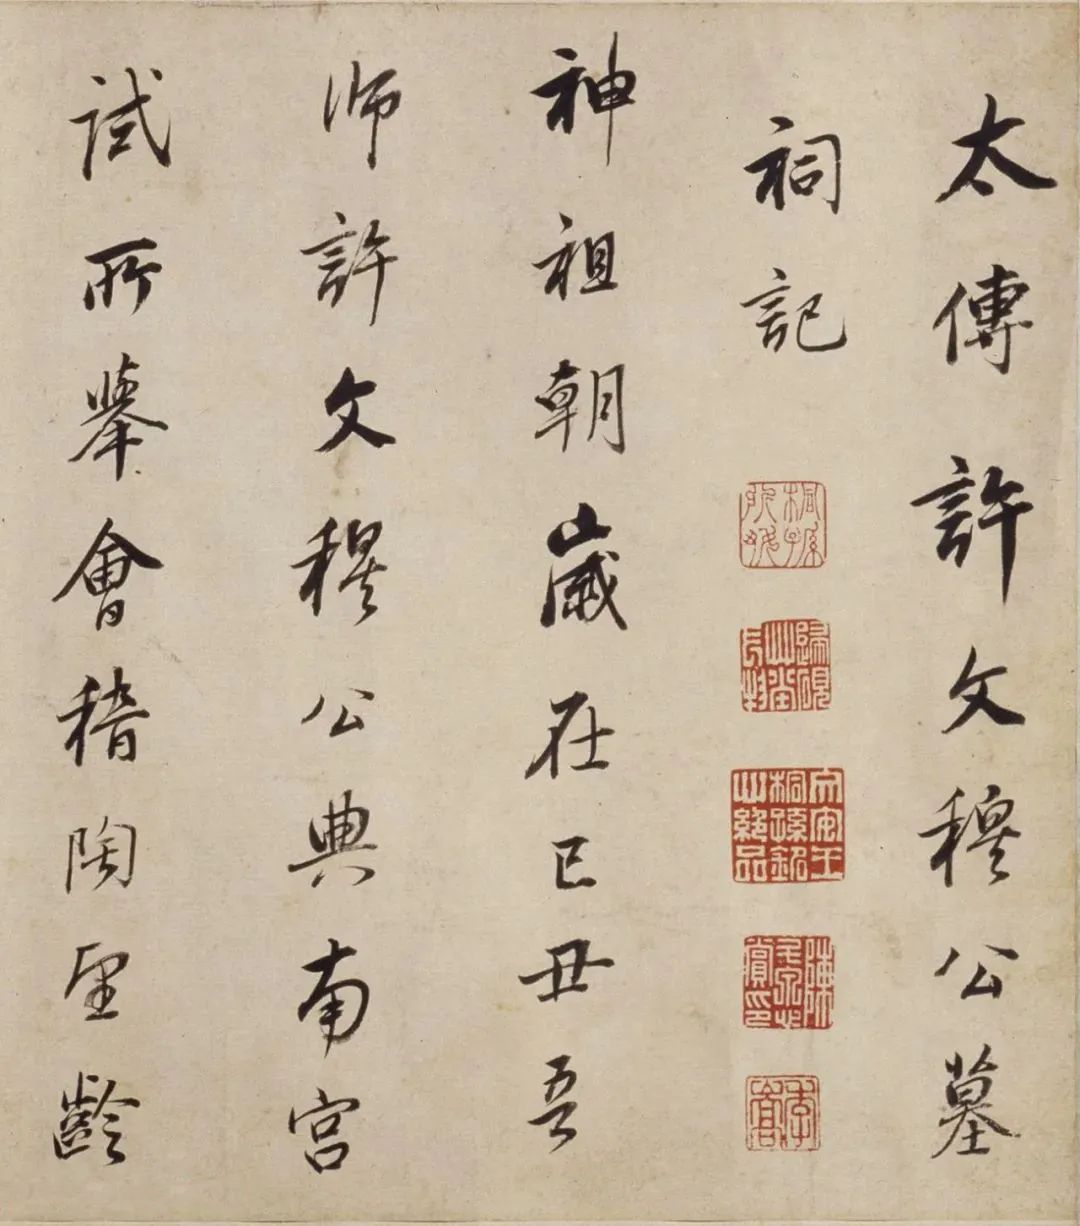 太傅許文穆公墓
祠記
神祖朝歲在己丑吾
師許文穆公典南宮
試所舉會稽陶望齡